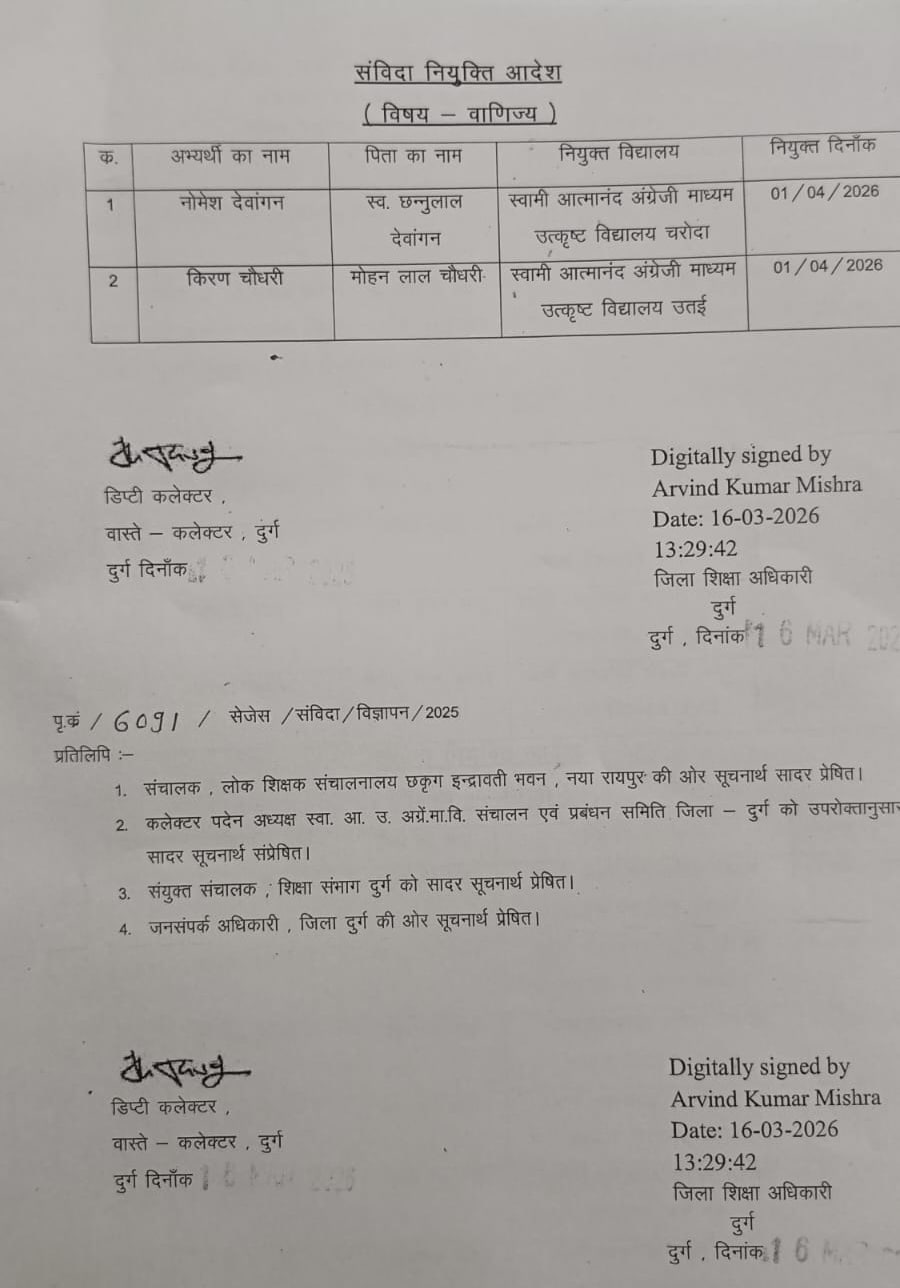 संविदा नियुक्ति आदेश
( विषय – वाणिज्य )
क. अभ्यर्थी का नाम पिता का नाम नियुक्त विद्यालय नियुक्त दिनाँक
1 नोमेश देवांगन स्व. छन्नुलाल देवांगन स्वामी आत्मानंद अंग्रेजी माध्यम उत्कृष्ट विद्यालय चरोदा 01/04/2026
2 किरण चौधरी मोहन लाल चौधरी स्वामी आत्मानंद अंग्रेजी माध्यम उत्कृष्ट विद्यालय उतई 01/04/2026
डिप्टी कलेक्टर ,
वास्ते – कलेक्टर , दुर्ग
दुर्ग दिनाँक
Digitally signed by
Arvind Kumar Mishra
Date: 16-03-2026
13:29:42
जिला शिक्षा अधिकारी
दुर्ग
दुर्ग , दिनांक 16 MAR
पृ.क्रं / 6091 / सेजेस /संविदा/विज्ञापन/2025
प्रतिलिपि :–
1. संचालक , लोक शिक्षक संचालनालय छकृग इन्द्रावती भवन , नया रायपुर की ओर सूचनार्थ सादर प्रेषित।
2. कलेक्टर पदेन अध्यक्ष स्वा. आ. उ. अग्रें.मा.वि. संचालन एवं प्रबंधन समिति जिला – दुर्ग को उपरोक्तानुसार
सादर सूचनार्थ संप्रेषित।
3. संयुक्त संचालक , शिक्षा संभाग दुर्ग को सादर सूचनार्थ प्रेषित।
4. जनसंपर्क अधिकारी , जिला दुर्ग की ओर सूचनार्थ प्रेषित।
डिप्टी कलेक्टर ,
वास्ते – कलेक्टर , दुर्ग
दुर्ग दिनाँक
Digitally signed by
Arvind Kumar Mishra
Date: 16-03-2026
13:29:42
जिला शिक्षा अधिकारी
दुर्ग
दुर्ग , दिनांक 16